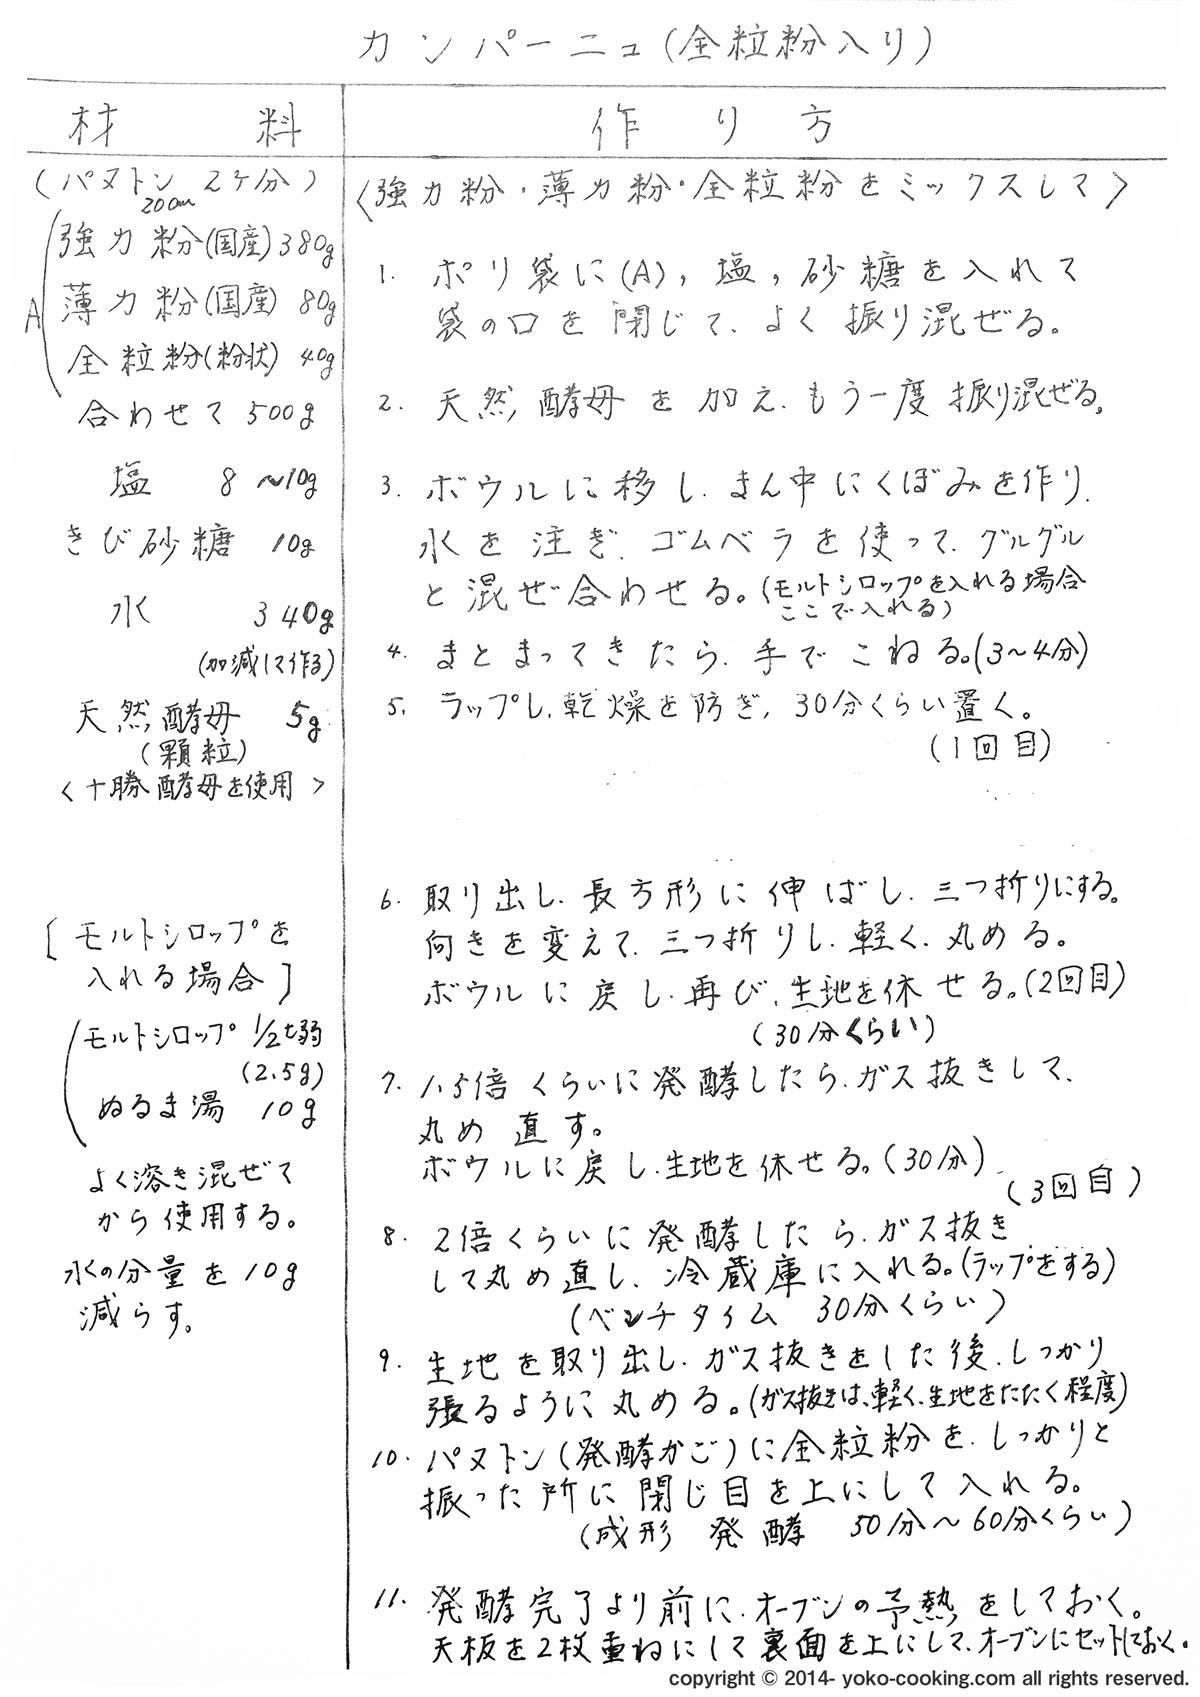 カンパーニュ(全粒粉入り)
材料
作り方
(パヌトン 2ケ分)
200cm
A
強力粉(国産)380g
薄力粉(国産) 80g
全粒粉(粉状) 40g
合わせて500g
塩 8~10g
きび砂糖 10g
水 340g
(加減して作る)
天然酵母 5g
(顆粒)
<十勝酵母を使用>
[モルトシロップを
入れる場合]
モルトシロップ 1/2t弱
(2.5g)
ぬるま湯 10g
よく溶き混ぜて
から使用する。
水の分量を10g
減らす。
<強力粉・薄力粉・全粒粉をミックスして>
1. ポリ袋に(A),塩,砂糖を入れて
袋の口を閉じて、よく振り混ぜる。
2. 天然酵母を加え、もう一度振り混ぜる。
3. ボウルに移し、まん中にくぼみを作り、
水を注ぎ、ゴムベラを使って、グルグル
と混ぜ合わせる。(モルトシロップを入れる場合
ここで入れる)
4. まとまってきたら、手でこねる。(3~4分)
5. ラップし、乾燥を防ぎ、30分くらい置く。
(1回目)
6. 取り出し、長方形に伸ばし、三つ折りにする。
向きを変えて、三つ折りし、軽く、丸める。
ボウルに戻し、再び、生地を休せる。(2回目)
(30分くらい)
7. 1.5倍くらいに発酵したら、ガス抜きして、
丸め直す。
ボウルに戻し、生地を休せる。(30分)
(3回目)
8. 2倍くらいに発酵したら、ガス抜き
して丸め直し、冷蔵庫に入れる。(ラップをする)
(ベンチタイム 30分くらい)
9. 生地を取り出し、ガス抜きをした後、しっかり
張るように丸める。(ガス抜きは、軽く、生地をたたく程度)
10. パヌトン(発酵かご)に全粒粉を、しっかりと
振った所に閉じ目を上にして入れる。
(成形発酵 50分~60分くらい)
11. 発酵完了より前に、オーブンの予熱をしておく。
天板を2枚重ねにして裏面を上にして、オーブンにセットしておく。
copyright © 2014- yoko-cooking.com all rights reserved.